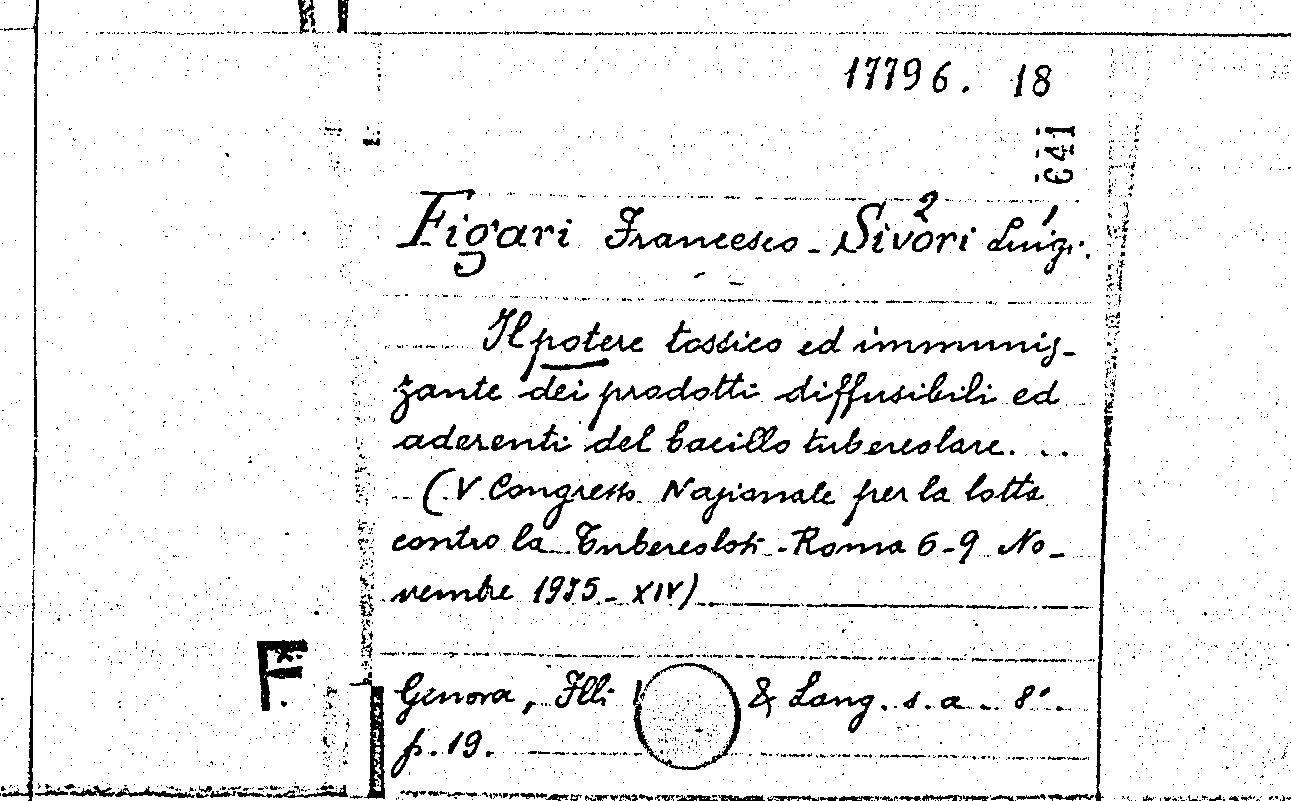 17796. 18
641
Figari Francesco - Sivori Luigi.
2 1
Il potere tossico ed immuniz-
zante dei prodotti diffusibili ed
aderenti del bacillo tubercolare. . .
(V Congresso Nazionale per la lotta
contro la Tubercolosi - Roma 6-9 No-
vembre 1935 - XIV)
F.
Genova, F.lli & Lang. s. a. 8°.
p. 19.